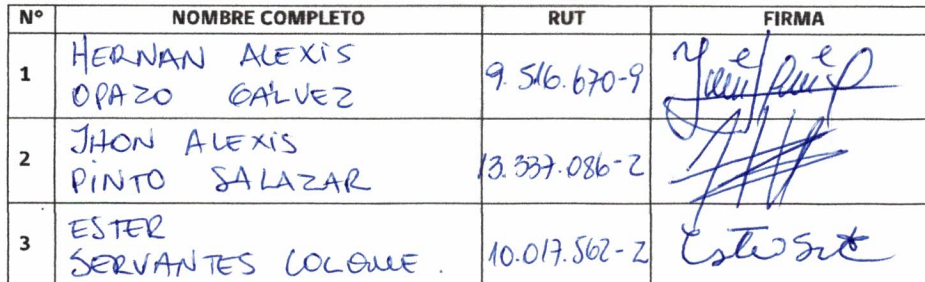 Nº NOMBRE COMPLETO RUT FIRMA
1 HERNAN ALEXIS
OPAZO GALVEZ 9.516.670-9
2 JHON ALEXIS
PINTO SALAZAR 13.337.086-2
3 ESTER
SERVANTES 10.017.562-2